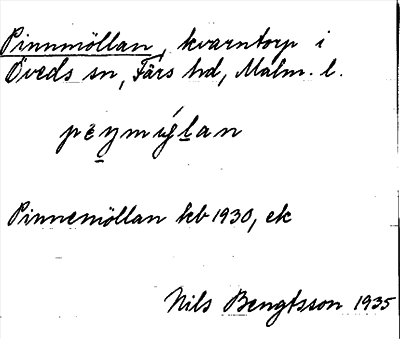 Pinnmöllan, kvarntorp i
Öveds sn, Färs hd, Malm. l.
Pinnemöllan kb 1930, ek
Nils Bengtsson 1935